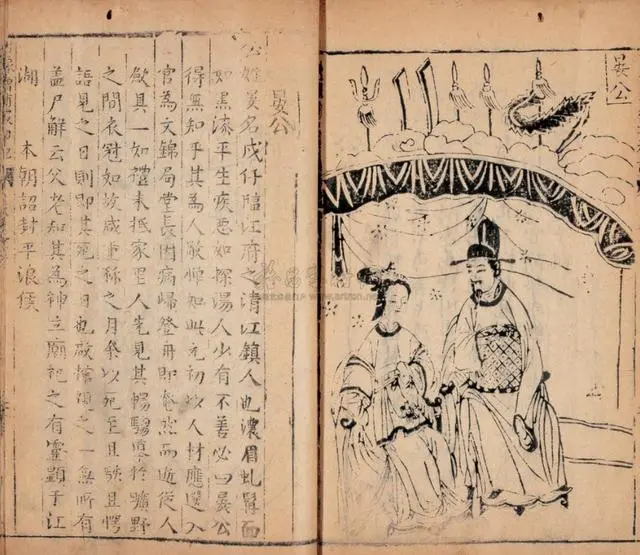 晏公
晏公
公姓晏名戍仔臨江府之清江鎮人也濃眉虬髯面
如黑漆平生疾惡如探湯人少有不善必曰晏公
得無知乎其為人敬憚如此元初以人材應選入
官為文錦局堂長因病歸登舟即奄然而逝從人
斂具一如禮未抵家里人先見其暢騶於曠野
之間衣冠如故咸重称之月余以死至且駭且愕
語見之日則即其死之日也啟棺視之一無所有
盖尸解云父老知其為神立廟祀之有靈顯于江
湖 本朝詔封平浪侯